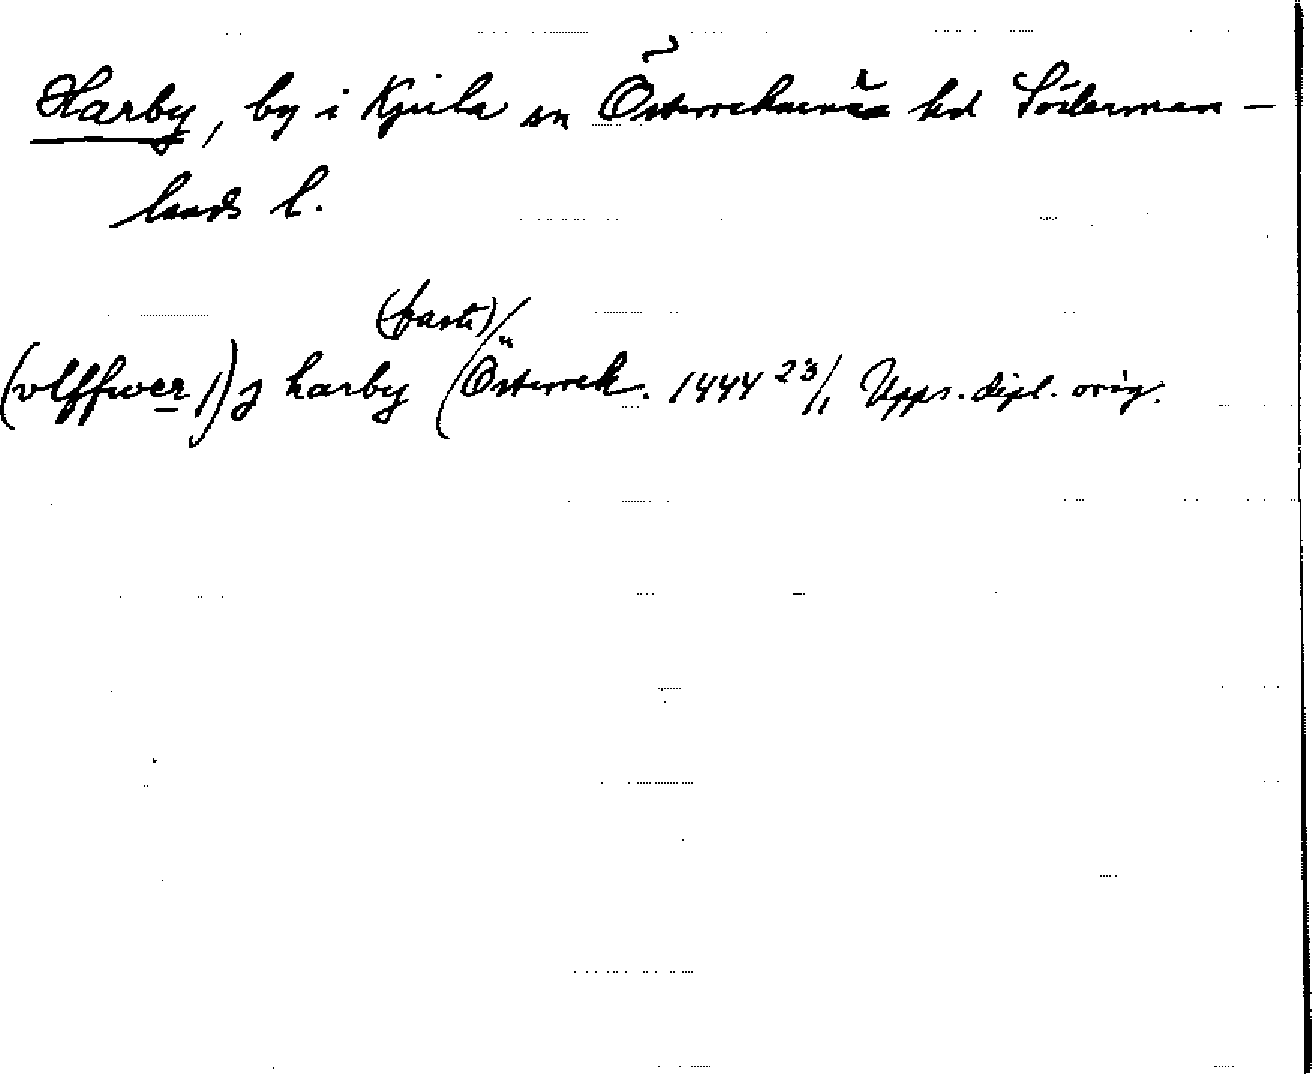 Harby, by i Kjula sn Österrekarne hd Söderman-
lands l.
(faste)
(vlffwer /) j harby (Österrek. 1444 23/1 Upps. dipl. orig.